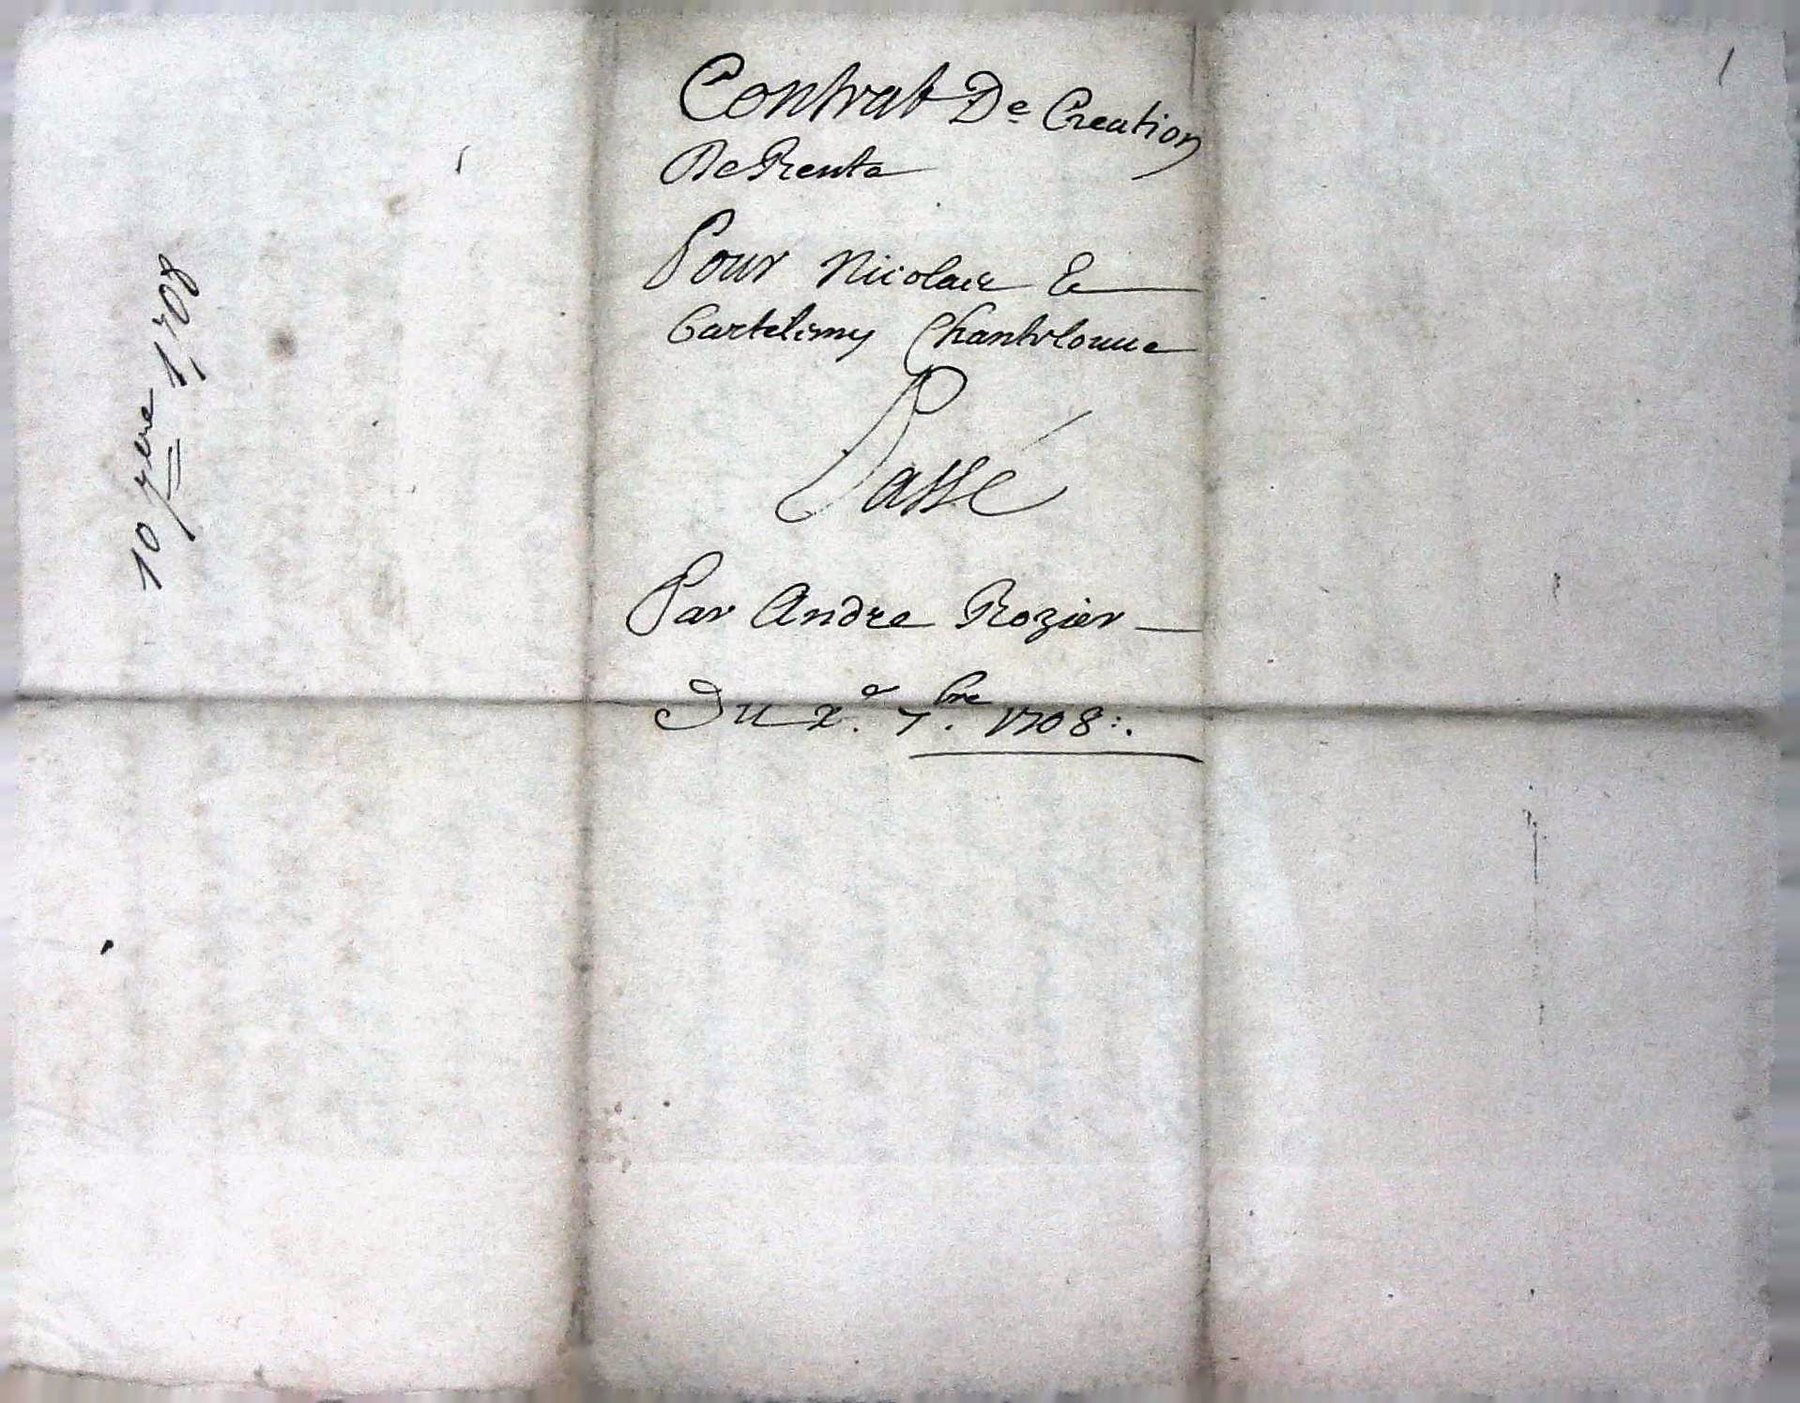 Contrat De Creation
De Rente
Pour Nicolas Et
bartelemy Chantelouue
Passé
Par Andre Rozier
Du x.e 7.bre 1708
10 7bre 1708